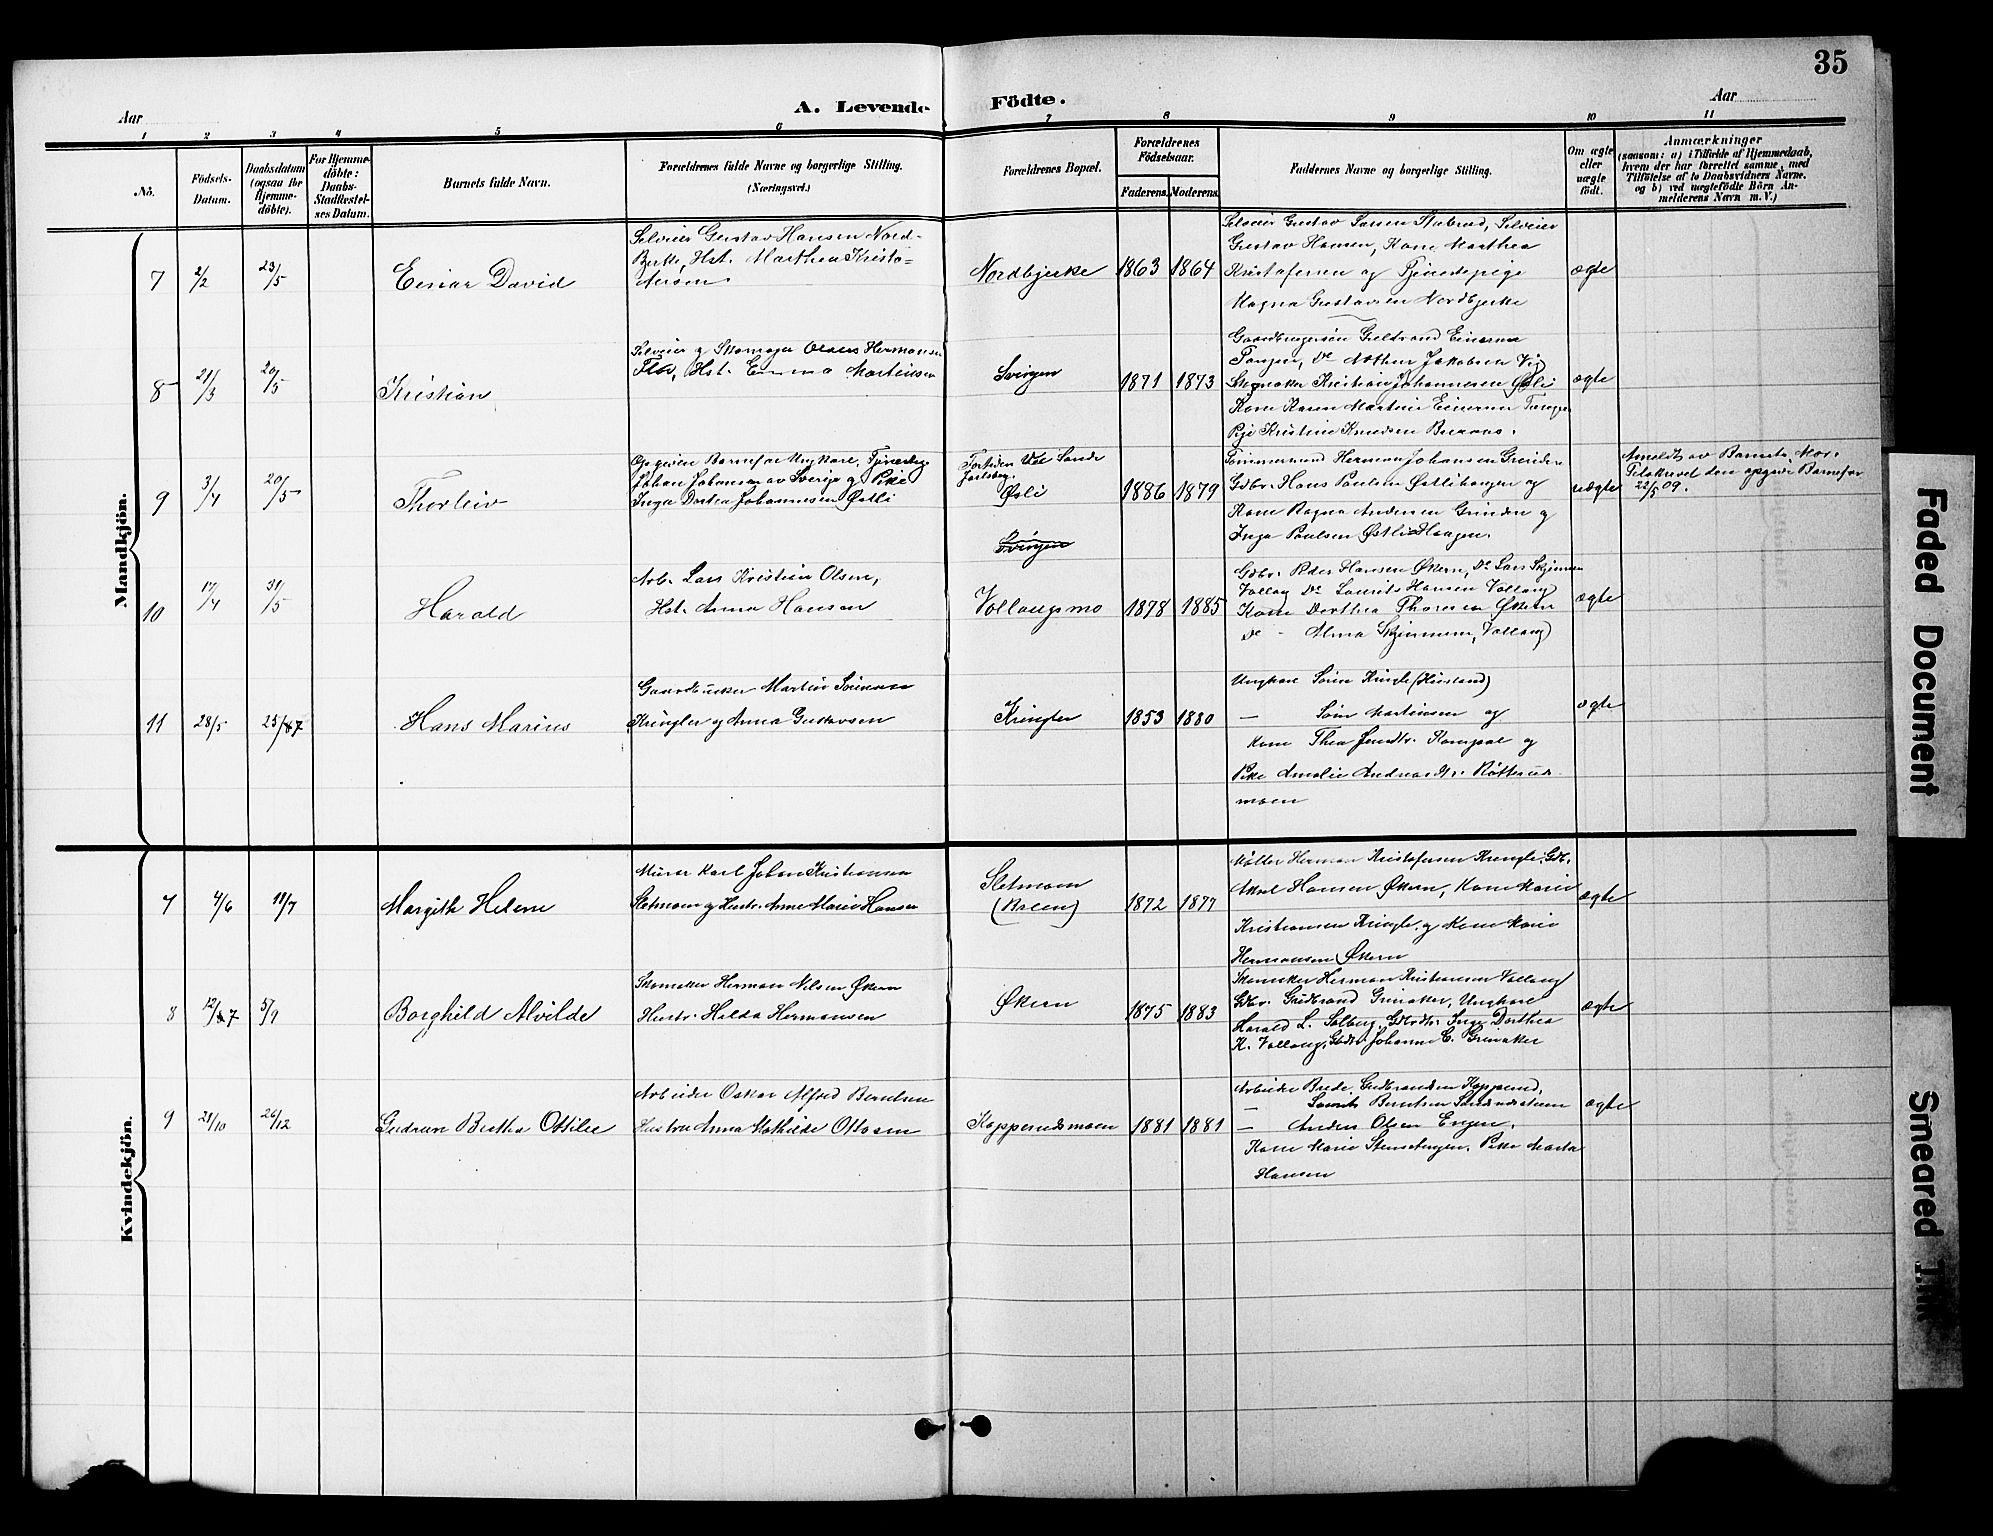 35
A. Levende Födte.
Aar
Aar
1 2 3 4 5 6 7 8 9 10 11
No.
Födsels-
Datum.
Daabsdatum
(ogsaa for
Hjemme-
döbte).
For Hjemme-
döbte:
Daabs-
Stadfæstel-
ses Datum.
Barnets fulde Navn.
Forældrenes fulde Navne og borgerlige Stilling.
(Næringsvei.)
Forældrenes Bopæl.
Forældrenes
Födselsaar.
Faderens. Moderens.
Faddernes Navne og borgerlige Stilling.
Om ægte
eller
uægte
födt.
Anmærkninger
(saasom: a) i Tilfælde af Hjemmedaab,
hvem der har forrettet samme, med
Tilföielse af to Daabsvidners Navne.
og b) ved uægtefödte Börn An-
melderens Navn m. V.)
Mandkjön.
7 2/2 23/5 Einar David
Selveier Gustav Hansen Nord-
Berke, Hst. Marthea Kristo-
fersen
Nordbjerke 1863 1864
Selveier Gustav Larsen Stubrud, Selveier
Gustav Hansen, Kone Marthea
Kristofersen og Tjenestepige
Magna Gustavsen Nordbjerke
ægte
8 21/3 20/5 Kristian
Selveier og Skomager Hermansen
Hst. Emma Martinsen
Svingen 1871 1873
Gaardbrugersön Einersen
Tangen, Do Arthur Jakobsen
Skomaker Kristian Johannesen Østli
Kone Karen Martine Einersen
Pige Kristine Knudsen
ægte
9 3/4 20/5 Thorleiv
Opgiven Barnefar Ungkarl, Tjenestedr.
Johan Johansen av Sverige og Pike
Inga Dortea Johannesen Østli
Fortiden Sande
Jarlsberg.
Østli
1886 1879
Tømmermand Herman Johansen Grinder
Gdbr. Hans Paulsen Østlihaugen og
Kone Ragna Andersen Grinder og
Inga Paulsen Østli Haagen.
uægte
Anmeldt av Barnets Mor.
Tilskrevet den opgivne Barnefar
22/5 09.
Svingen
10 17/4 31/5 Harald
Arb. Lars Kristian Olsen,
Hst. Anna Hansen
Vollaugsmo 1878 1885
Gdbr. Peder Hansen Økern, Do Lars Skjennum
Vollaug Do Laurits Hansen Vollaug
Kone Dorthea Thoresen Økern
Do - Alma Skjennum, Vollaug
ægte
11 28/5 25/7 Hans Marius
Gaardbruker Martin Sörensen
Kringler og Anna Gustavsen
Kringler 1853 1880
Ungkarl Sören Kringle
— Sören Martinsen og
Kone Thea og
Pike Amalie Røtterud-
moen
ægte
Kvindekjön.
7 4/6 11/7 Margith Helene
Murer Karl Johan Kristiansen
Sletmoen og Hustr. Anne Marie Hansen
Sletmoen
1872 1877
Møller Herman Kristofersen Kringle, Gdb.
Axel Hansen Økern, Kone Marie
Kristiansen Kringle, og Kone Marie
Hermansen Økern
ægte
8 12/7 5/9 Borghild Alvilde
Skomaker Herman Nilsen Økern
Hustr. Hilda Hermansen
Økern 1875 1883
Skomaker Herman Kristiansen Vollaug
Gdbr. Gudbrand Grinaker, Ungkarl
Harald L. Solberg, Gdbrdtr. Inga Dorthea
K. Vollaug, Gbdtr. Johanne E. Grinaker
ægte
9 21/10 26/12 Gudrun Bertha Ottilie
Arbeider Oskar Alfred Berntsen
Hustru Anna Mathilde Ottosen
Kopperudsmoen 1881 1881
Arbeider Brede Gudbrandsen Kopperud,
— Laurits Berntsen
— Anders Olsen Engen,
Kone Marie Stensbergen, Pike Marta
Hansen
ægte
Faded Document
Smeared Ink